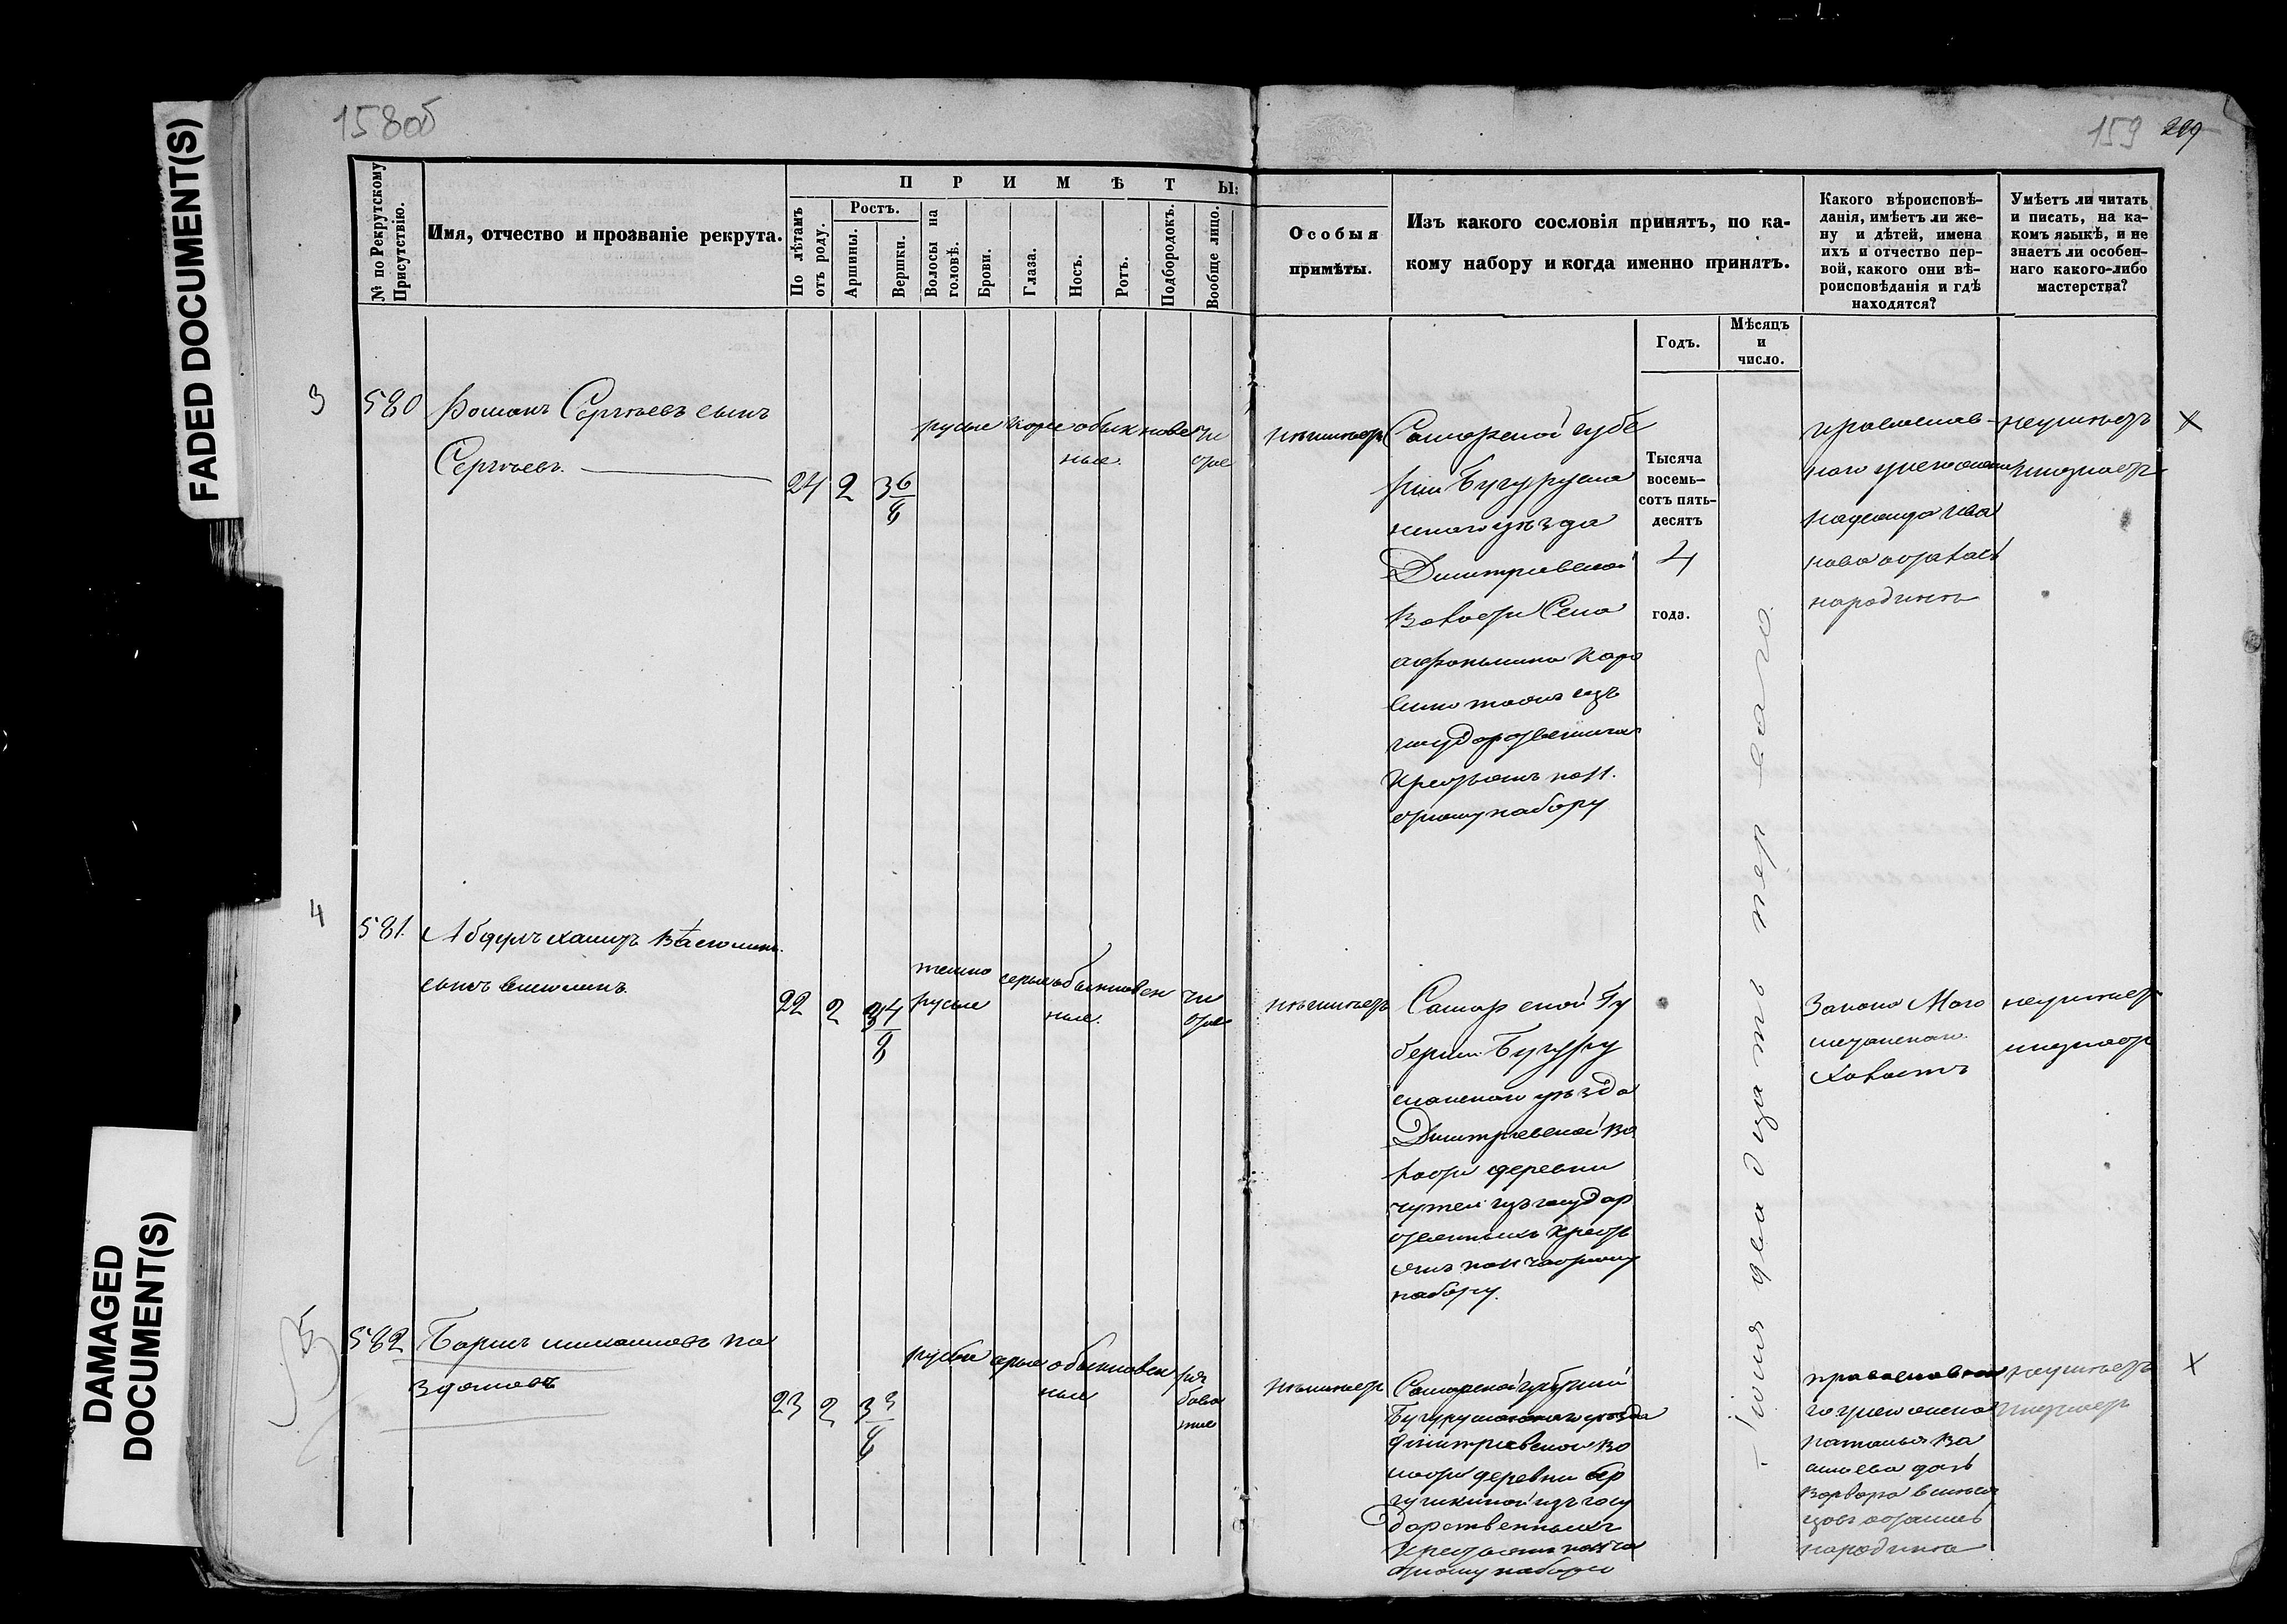 158об
159 299
FADED DOCUMENT(S)
DAMAGED
DOCUMENT(S)
№ по Рекрутскому
Присутствію.
Имя, отчество и прозваніе рекрута.
ПРИМѢТЫ:
По лѣтамъ
отъ роду.
Ростъ.
Аршины.
Вершки.
Волосы на
головѣ.
Брови.
Глаза.
Носъ.
Ротъ.
Подбородокъ.
Вообще лицо.
Особыя
примѣты.
Изъ какого сословія принятъ, по ка-
кому набору и когда именно принятъ.
Годъ.
Мѣсяцъ
и
число.
Какого вѣроисповѣ-
данія, имѣетъ ли же-
ну и дѣтей, имена
ихъ и отчество пер-
вой, какого они вѣ-
роисповѣданія и гдѣ
находятся?
Умѣетъ ли читать
и писать, на ка-
комъ языкѣ, и не
знаетъ ли особен-
наго какого-либо
мастерства?
3
580
Романъ Сергѣевъ сынъ
Сергѣевъ.
24 2 3 6/8
русые карие обыкновен
ные.
чи
стое
неимѣетъ
Самарской губе
рніи Бугурусла
нскаго уѣзда
Дмитриевской
Волости Села
изъ
государственныхъ
Крестьянъ по 11.
стному набору
Тысяча
восемь-
сотъ пять-
десятъ
4
года.
Іюля двадцать пер ваго
православ-
наго
Надежда Ива
нова осталась
народинѣ
неумѣетъ
инезнаетъ
х
4
581.
сынъ
22 2 3 4/8
темно
русые
серые обыкновен
ные.
чи
стое
неимѣетъ
Самарской Гу
берніи Бугуру
сланскаго уѣзда
Дмитриевской Во
лости деревни
изъ государ
ственныхъ Крест
янъ по 11 частному
набору.
Закона Маго
метанскаго
Холостъ
неумѣетъ
инезнаетъ
5
582
23 2 3 3/8
русые серые обыкновен
ные
ря
бова
тое
неимѣетъ
Самарской губерніи
Бугурусланскаго уѣзда
Дмитриевской во
лости деревни
изъ госу
дарственныхъ
Крестьянъ по 11 ча
стному набору
православна
го
Наталья Ва
сильева дочь
Варвара
осталась
народинѣ
неумѣетъ
инезнаетъ
х